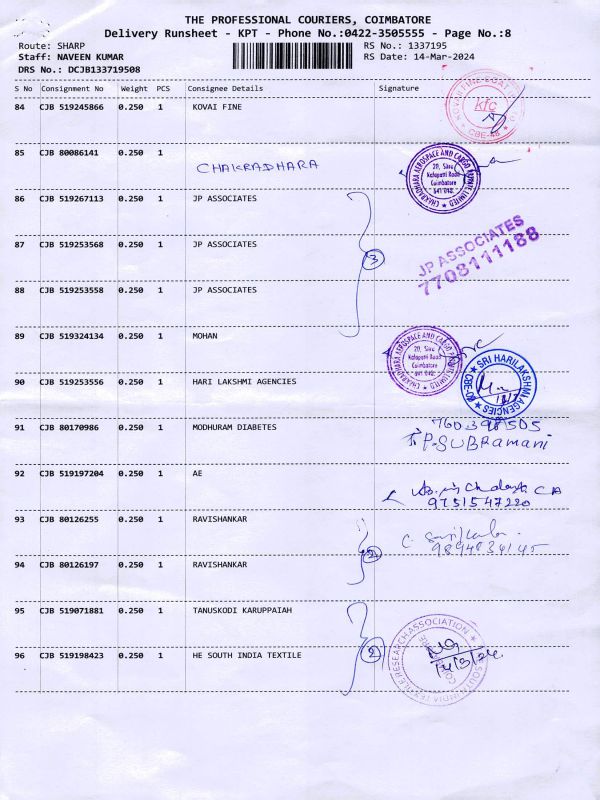 THE PROFESSIONAL COURIERS, COIMBATORE
Delivery Runsheet - KPT - Phone No.:0422-3505555 - Page No.:8
Route: SHARP RS No.: 1337195
Staff: NAVEEN KUMAR RS Date: 14-Mar-2024
DRS No.: DCJB133719508
S No Consignment No Weight PCS Consignee Details Signature
84 CJB 519245866 0.250 1 KOVAI FINE
kfc
CBE-48
85 CJB 80086141 0.250 1
CHAKRADHARA
CHAKRADHARA AEROSPACE AND CARGO PRIVATE LIMITED
Coimbatore
86 CJB 519267113 0.250 1 JP ASSOCIATES
87 CJB 519253568 0.250 1 JP ASSOCIATES
3
JP ASSOCIATES
7708111188
88 CJB 519253558 0.250 1 JP ASSOCIATES
89 CJB 519324134 0.250 1 MOHAN
CHAKRADHARA AEROSPACE AND CARGO PRIVATE LIMITED
Coimbatore
90 CJB 519253556 0.250 1 HARI LAKSHMI AGENCIES
SRI HARILAKSHMI AGENCIES
91 CJB 80170986 0.250 1 MODHURAM DIABETES
P.SUBRamani
92 CJB 519197204 0.250 1 AE
9751547220
93 CJB 80126255 0.250 1 RAVISHANKAR
2
94 CJB 80126197 0.250 1 RAVISHANKAR
95 CJB 519071881 0.250 1 TANUSKODI KARUPPAIAH
96 CJB 519198423 0.250 1 HE SOUTH INDIA TEXTILE
2
SOUTH INDIA TEXTILE RESEARCH ASSOCIATION
14/3/24